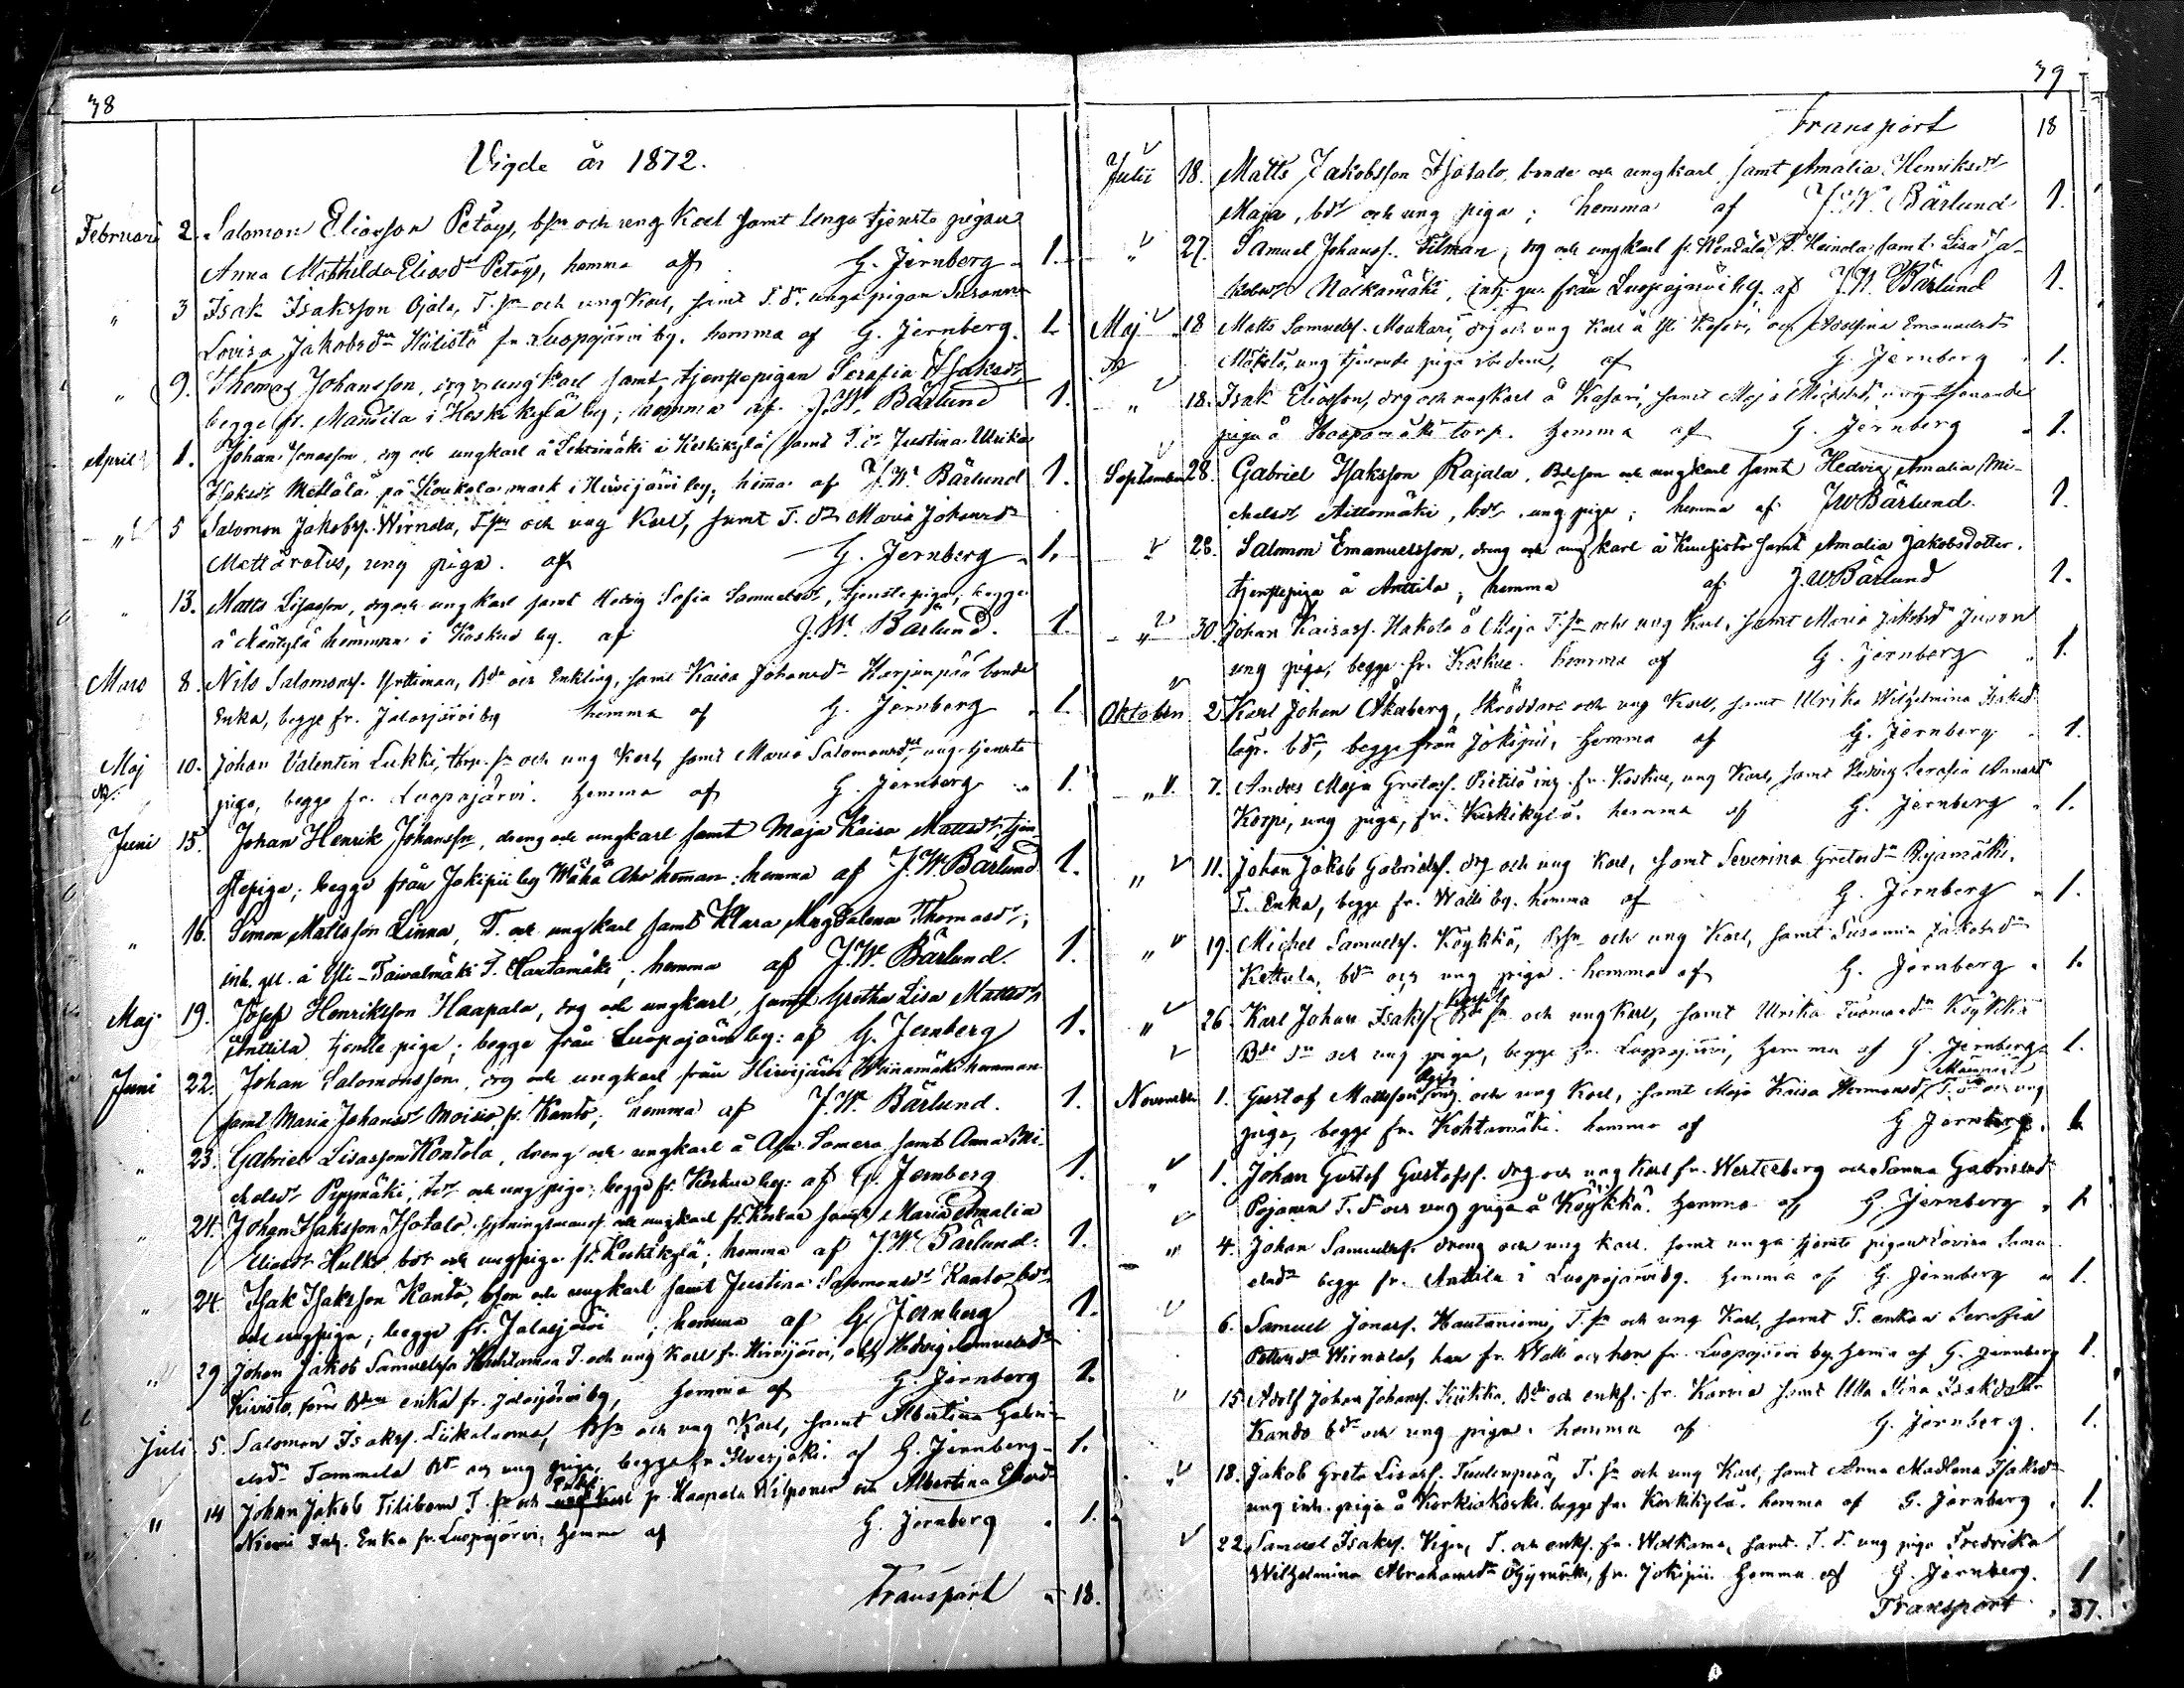 38
Vigde år 1872.
Februari 2. Salomon Eliasson Petäys, bsn och ung Karl samt unga tjenste pigan
Anna Mathilda Eliasdr Petäys, hemma af G. Jernberg 1.
" 3 Isak Isaksson Ojala, T. sn och ung Karl, samt T. dr. unga pigan Susanna
Lovisa Jakobsdr Hilistö fr. Luopajärvi by. hemma af G. Jernberg. 1.
" 9. Thomas Johansson, drg o. ungkarl samt tjenstepigan Serafia Isaksdr,
begge fr. Mandila i Keskikylä by; hemma af J. W. Bärlund 1.
April 1. Johan Jonasson, drg och ungkarl å Lehtimäki i Keskikylä samt T. dr Justina Ulrika
Isaksdr Mettälä på Koukola mark i Hirvijärvi by; hemma af J. W. Bärlund 1.
" 5 Salomon Jakobss. Wirnala, T. sn och ung Karl, samt T. dr Maria Johansdr
ung piga. af G. Jernberg 1.
" 13. Matts Lisasson, drg och ungkarl samt Hedvig Sofia Samuelsdr, tjenstepiga, begge
å Mäntylä hemman i Koskue by. af J. W. Bärlund. 1.
Mars 8. Nils Salomonss. Yrttimaa, Bde och Enkling, samt Kaisa Johansdr Harjunpää bonde
Enka, begge fr. Jalasjärvi by hemma af G. Jernberg 1.
Maj 10. Johan Valentin Lukki, torp. sn och ung Karl, samt Maria Salomonsdr, ung tjenste
piga, begge fr. Luopajärvi. Hemma af G. Jernberg 1.
Juni 15. Johan Henrik Johansson, dreng och ungkarl samt Maja Kaisa Mattsdr, tjen-
stepiga; begge från Jokipii by Wähä Aho heman: hemma af J. W. Bärlund 1.
" 16. Simon Mattsson Linna, T. och ungkarl samt Klara Magdalena Thomasdr,
inh. gel. å Yli-Taivalmäki T. Hautamäki; hemma af J. W. Bärlund. 1.
Maj 19. Josef Henriksson Haapala, drg och ungkarl, samt Gretha Lisa Mattsdr
Anttila tjenste piga; begge från Luopajärvi by: af G. Jernberg 1.
Juni 22. Johan Salomonsson, drg och ungkarl från Hirvijärvi Wiinamäki hemman
samt Maria Johansdr Moisio, fr. Kanto; hemma af J. W. Bärlund. 1.
" 23. Gabriel Lisasson Kontola, dreng och ungkarl å Ala-Somero samt Anna Mi-
chelsdr Peppmäki, tdr och ung piga; begge fr. Koskue by: af G. Jernberg 1.
" 24. Johan Isaksson Isotalo, sytningsmans s. och ungkarl fr. Koskue samt Maria Amalia
Eliasdr Hulko, bdr och ungpiga fr. Keskikylä; hemma af J. W. Bärlund. 1.
" 24. Isak Isaksson Kanto, bson och ungkarl samt Justina Salomonsdr Kanto, bdr
och ungpiga; begge fr. Jalasjärvi; hemma af G. Jernberg 1.
" 29. Johan Jakob Samuelss. Huhtamaa T. och ung Karl fr. Hirvijärvi, och Hedvig Samuelsdr
Kivistö, förre Bdens enka fr. Jalasjärvi by, hemma af G. Jernberg 1.
Juli 5. Salomon Isakss. Liikaluoma, bsn och ung Karl, samt Albertina Gabri-
elsdr Tammela Bdr och ung piga, begge fr. Ilvesjoki af G. Jernberg 1.
" 14 Johan Jakob Tilibom T. sn och Enkl fr. Haapala Wilponen och Albertina Eliasdr
Niemi Inh. Enka fr. Luopajärvi, hemma af G. Jernberg 1.
Transport 18.
39
Transport 18
Julii 18. Matts Jakobsson Isotalo, bonde och ungkarl samt Amalia Henriksdr
Maja, bdr och ung piga; hemma af J. W. Bärlund 1.
" 27. Samuel Johanss. Tilman, drg och ungkarl fr. T. Heinola samt Lisa Ja-
kobsdr Nälkämäki, inh. gu. från Luopajärvi by. af J. W. Bärlund 1.
Maj 18 Matts Samuelss. Moukari, drg och ung Karl å Yli Kesäri, och Adolfina Emanuelsdr
Mäkelä, ung tjenande piga ibidem, af G. Jernberg 1.
" 18. Isak Eliasson, drg och ungkarl å Kasari, samt Maja Michelsdr ung tjenande
piga å Haapamäki torp. Hemma af G. Jernberg 1.
September 28. Gabriel Isaksson Rajala, Bdesson och ungkarl samt Hedvig Amalia Mi-
chelsdr Aittomäki, bdr, ung piga; hemma af J W Bärlund. 1.
28. Salomon Emanuelsson, dreng och ungkarl å Kuusisto samt Amalia Jakobsdotter,
tjenstepiga å Anttila; hemma af J. W Bärlund 1.
" 30. Johan Kaisass. Hakola å Maja T. sn och ung Karl, samt Maria Jakobsdr Juson
ung piga, begge fr. Koskue. hemma af G. Jernberg 1.
Oktober 2. Karl Johan Åkaberg, skräddare och ung Karl, samt Ulrika Wilhelmina Isaksdr
bdr, begge från Jokipii, hemma af G. Jernberg 1.
" 7. Anders Maja Gretass. Pietilä inh. fr. Koskue, ung Karl, samt Hedvig Serafia Annasdr
Korpi, ung piga, fr. Keskikylä. hemma af G. Jernberg 1.
" 11. Johan Jakob Gabrielss. drg och ung Karl, samt Severina Gretasdr Rojamäki,
T. Enka, begge fr. Walli by. hemma af G. Jernberg 1.
" 19. Michel Samuelss. Köykkä, Bsn och ung Karl, samt Susanna Jakobsdr
Kettula, bdr och ung piga. hemma af G. Jernberg 1.
" 26. Karl Johan Isakss. Bde sn och ung Karl, samt Ulrika Tuomasdr Köykkä
Bde dr och ung piga, begge fr. Luopajärvi, hemma af G. Jernberg 1.
November 1. Gustaf Mattsson inh. och ung Karl, samt Maja Kaisa Hermansdr T. dr och ung
piga, begge fr. Kohtamäki. hemma af G Jernberg. 1.
" 1. Johan Gustaf Gustafss. drg och ung Karl fr. Werteeberg och Sanna Gabrielsdr
Pojanen T. dr och ung piga å Köykkä. Hemma af G. Jernberg 1.
" 4. Johan Samuelss. dreng och ung karl. samt unga tjenste pigan Lovisa Samu-
elsdr begge fr. Anttila i Luopajärvi by. Hemma af G. Jernberg 1.
6. Samuel Jonass. Hautaniemi, T. sn och ung Karl, samt T. enkan Serafia
Wirnala, han fr. Walli och hon fr. Luopajärvi by. Hemma af G. Jernberg 1.
" 15. Adolf Johan Johanss. Kiikka, Bde och enkl. fr. Karvia samt Ulla Stina Isaksdotter
Kando bdr och ung piga. hemma af G. Jernberg. 1.
" 18. Jakob Greta Lisass. Tuulenperä, T. sn och ung Karl, samt Anna Madlena Isaksdr
ung inh. piga å Korkiakoski. begge fr. Keskikylä. hemma af G. Jernberg 1.
22. Samuel Isakss. T. och enkl. fr. Wälkama, samt. T. d. ung piga Fredrika
Wilhelmina Abrahamsdr, fr. Jokipii. Hemma af G. Jernberg. 1
Transport 37.